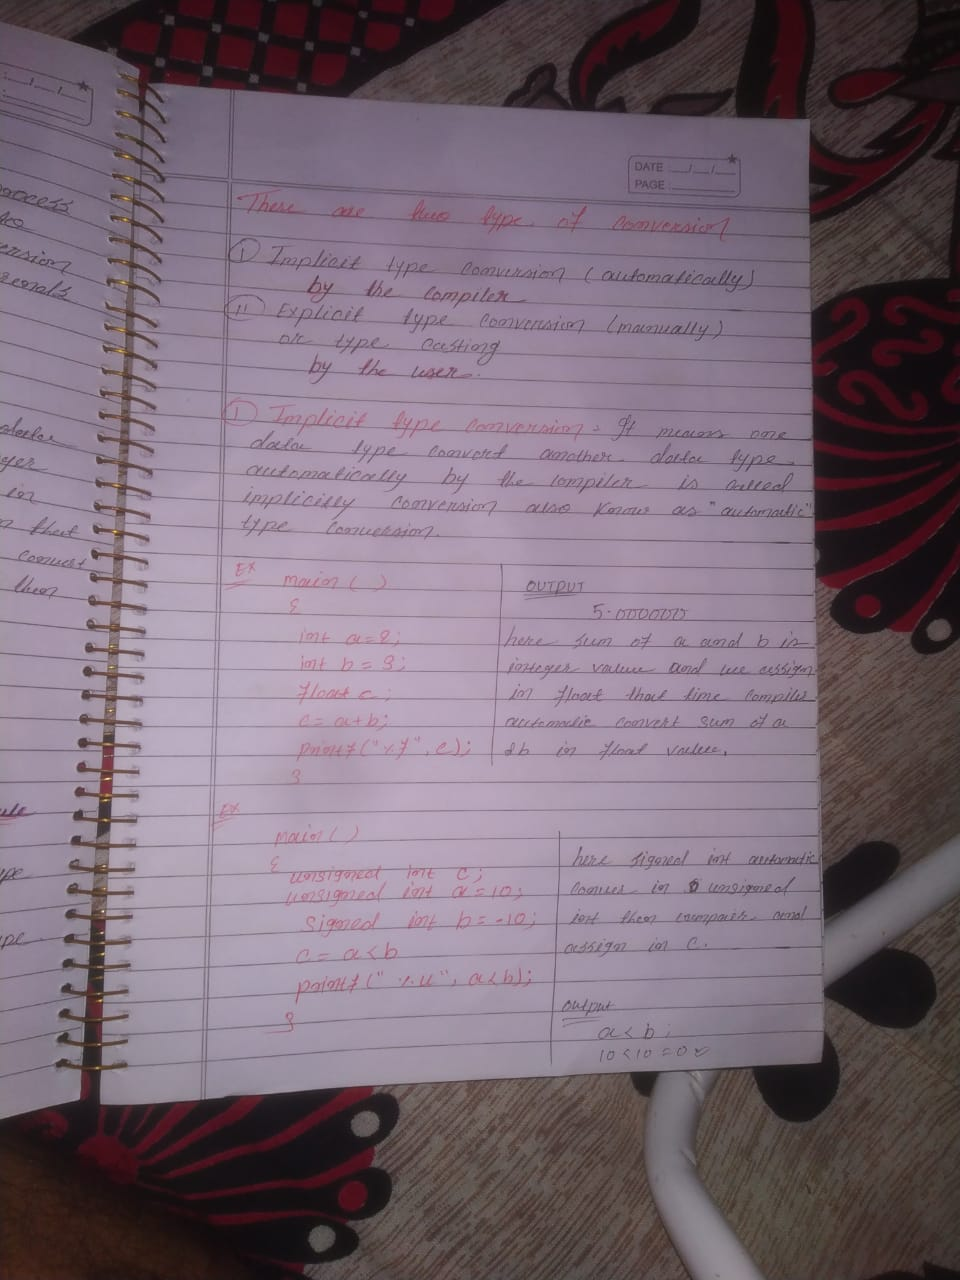 DATE
PAGE
ocess
ension
There are two type of conversion
I Implicit type conversion (automatically)
by the compiler
II Explicit type conversion (manually)
or type casting
by the user.
I Implicit type conversion - It means one
data type convert another data type
automatically by the compiler is called
implicitly conversion also known as "automatic"
type conversion.
EX
main ( )
{
int a=2;
int b = 3;
float c;
c = a+b;
printf("%f", c);
}
OUTPUT
5.000000
here sum of a and b is
integer value and we assign
in float that time compiler
automatic convert sum of a
&b in float value.
EX
main ( )
{
unsigned int c;
unsigned int a = 10;
signed int b = -10;
c = a<b
printf (" %u", a<b);
}
here signed int automatic
in unsigned
int then and
assign in c.
output
a < b ;
10 < 10 = 0
that
convert
then
in